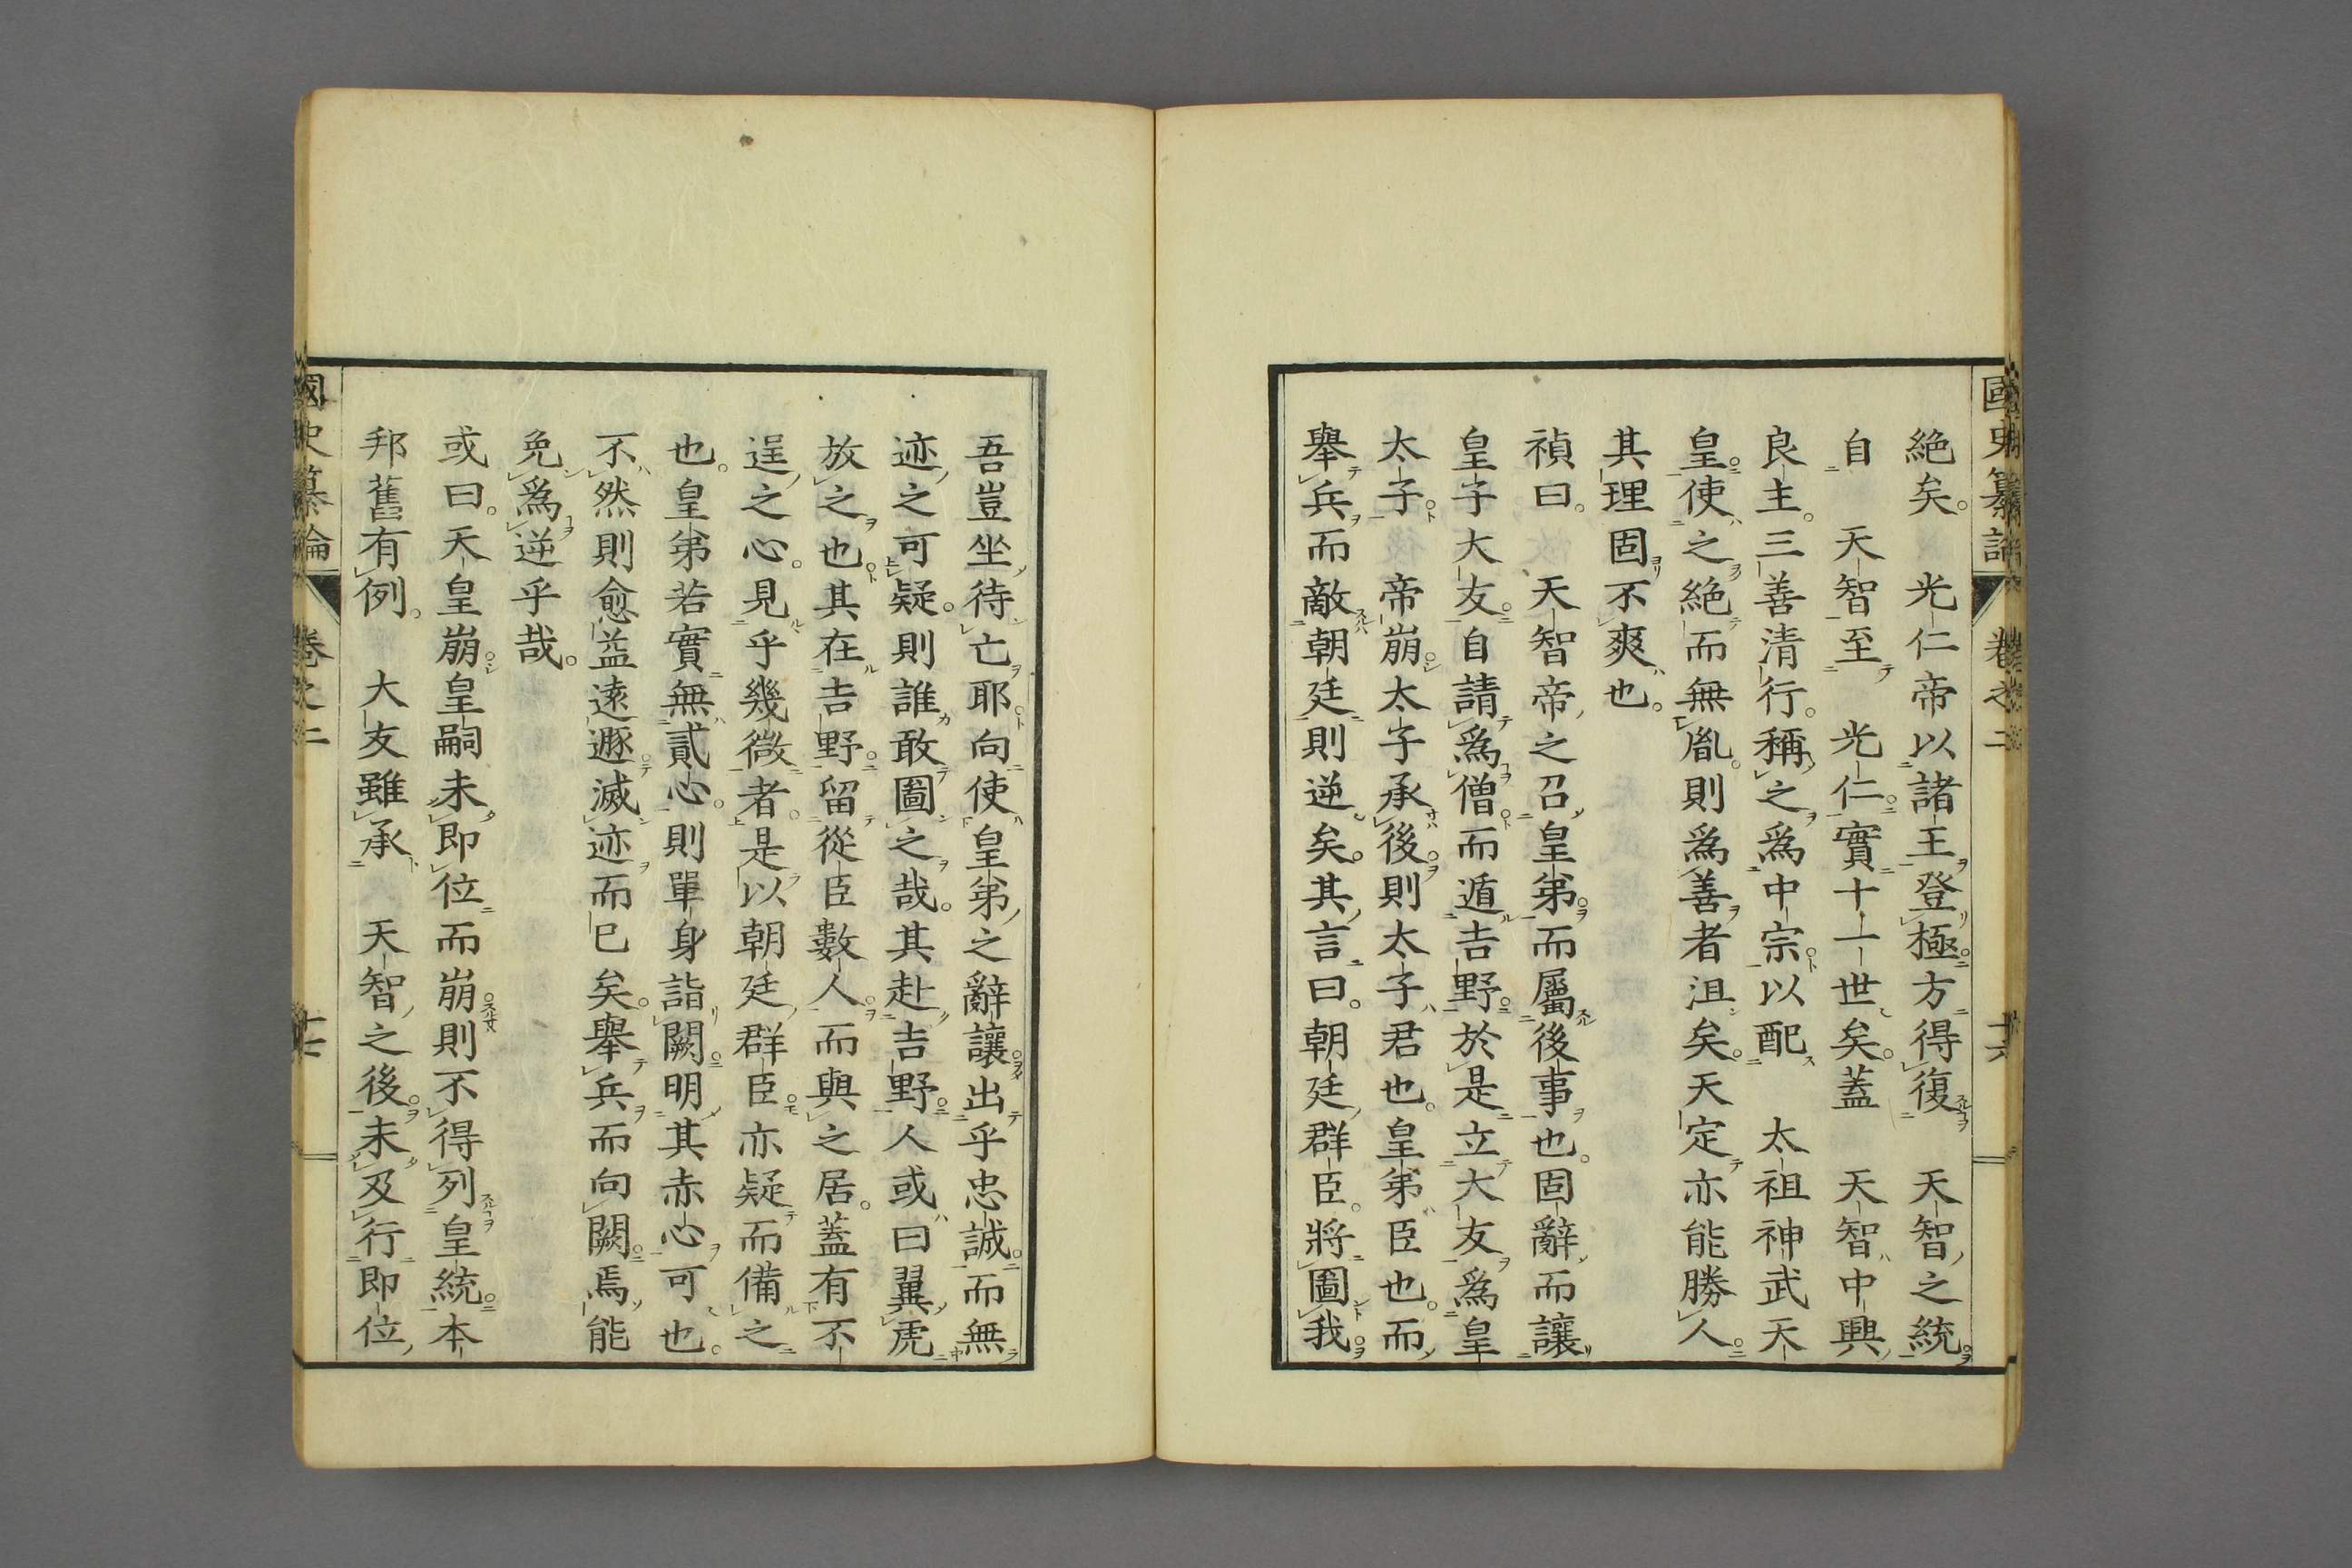 國史纂論 卷之二 十六
絶矣。 光仁帝以諸王登極。方得復 天智之統。
自 天智至 光仁。實十一世矣。蓋 天智中興
良主。三善清行。稱之爲中宗。以配 太祖神武天
皇。使之絶而無胤。則爲善者沮矣。天定亦能勝人。
其理固不爽也。
禎曰。 天智帝之召皇弟。而屬後事也。固辭而讓
皇子大友。自請爲僧。而遁吉野。於是立大友爲皇
太子。 帝崩。太子承後。則太子君也。皇弟臣也。而
舉兵而敵朝廷則逆矣。其言曰。朝廷群臣。將圖我。
吾豈坐待亡耶。向使皇弟之辭讓。出乎忠誠。而無
迹之可疑。則誰敢圖之哉。其赴吉野。人或曰翼虎
放之也。其在吉野。留從臣數人。而與之居。蓋有不
逞之心。見乎幾微者。是以朝廷群臣。亦疑而備之
也。皇弟若實無貳心。則單身詣闕。明其赤心可也。
不然則愈益遠遯。滅迹而已矣。舉兵而向闕。焉能
免爲逆乎哉。
或曰。天皇崩。皇嗣未即位而崩。則不得列皇統。本
邦舊有例。 大友雖承 天智之後。未及行即位
國史纂論 卷之二 十七